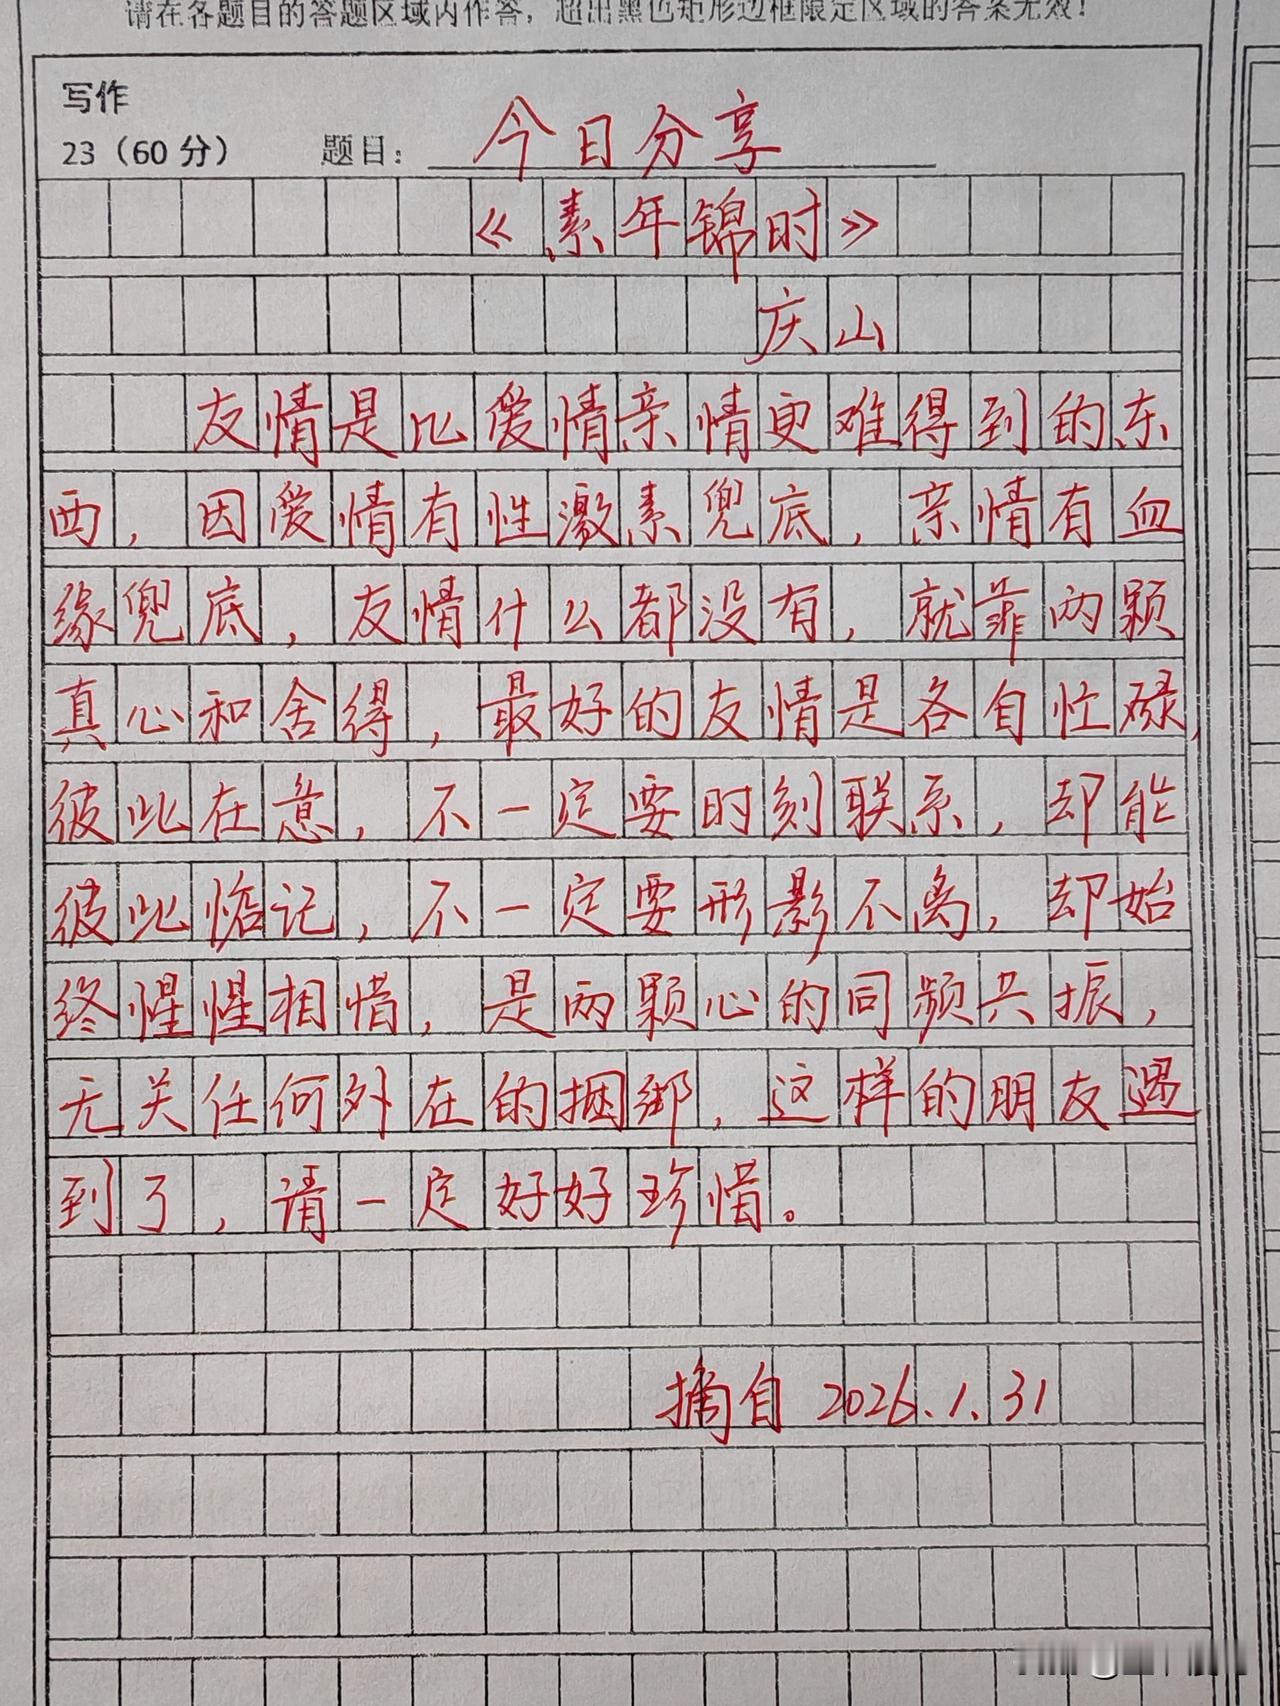 请在各题目的答题区域内作答，超出黑色矩形边框限定区域的答案无效！
写作
23（60分） 题目：今日分享
《素年锦时》
庆山
友情是比爱情亲情更难得到的东
西，因爱情有性激素兜底，亲情有血
缘兜底，友情什么都没有，就靠两颗
真心和舍得，最好的友情是各自忙碌，
彼此在意，不一定要时刻联系，却能
彼此惦记，不一定要形影不离，却始
终惺惺相惜，是两颗心的同频共振，
无关任何外在的捆绑，这样的朋友遇
到了，请一定好好珍惜。
摘自2026.1.31